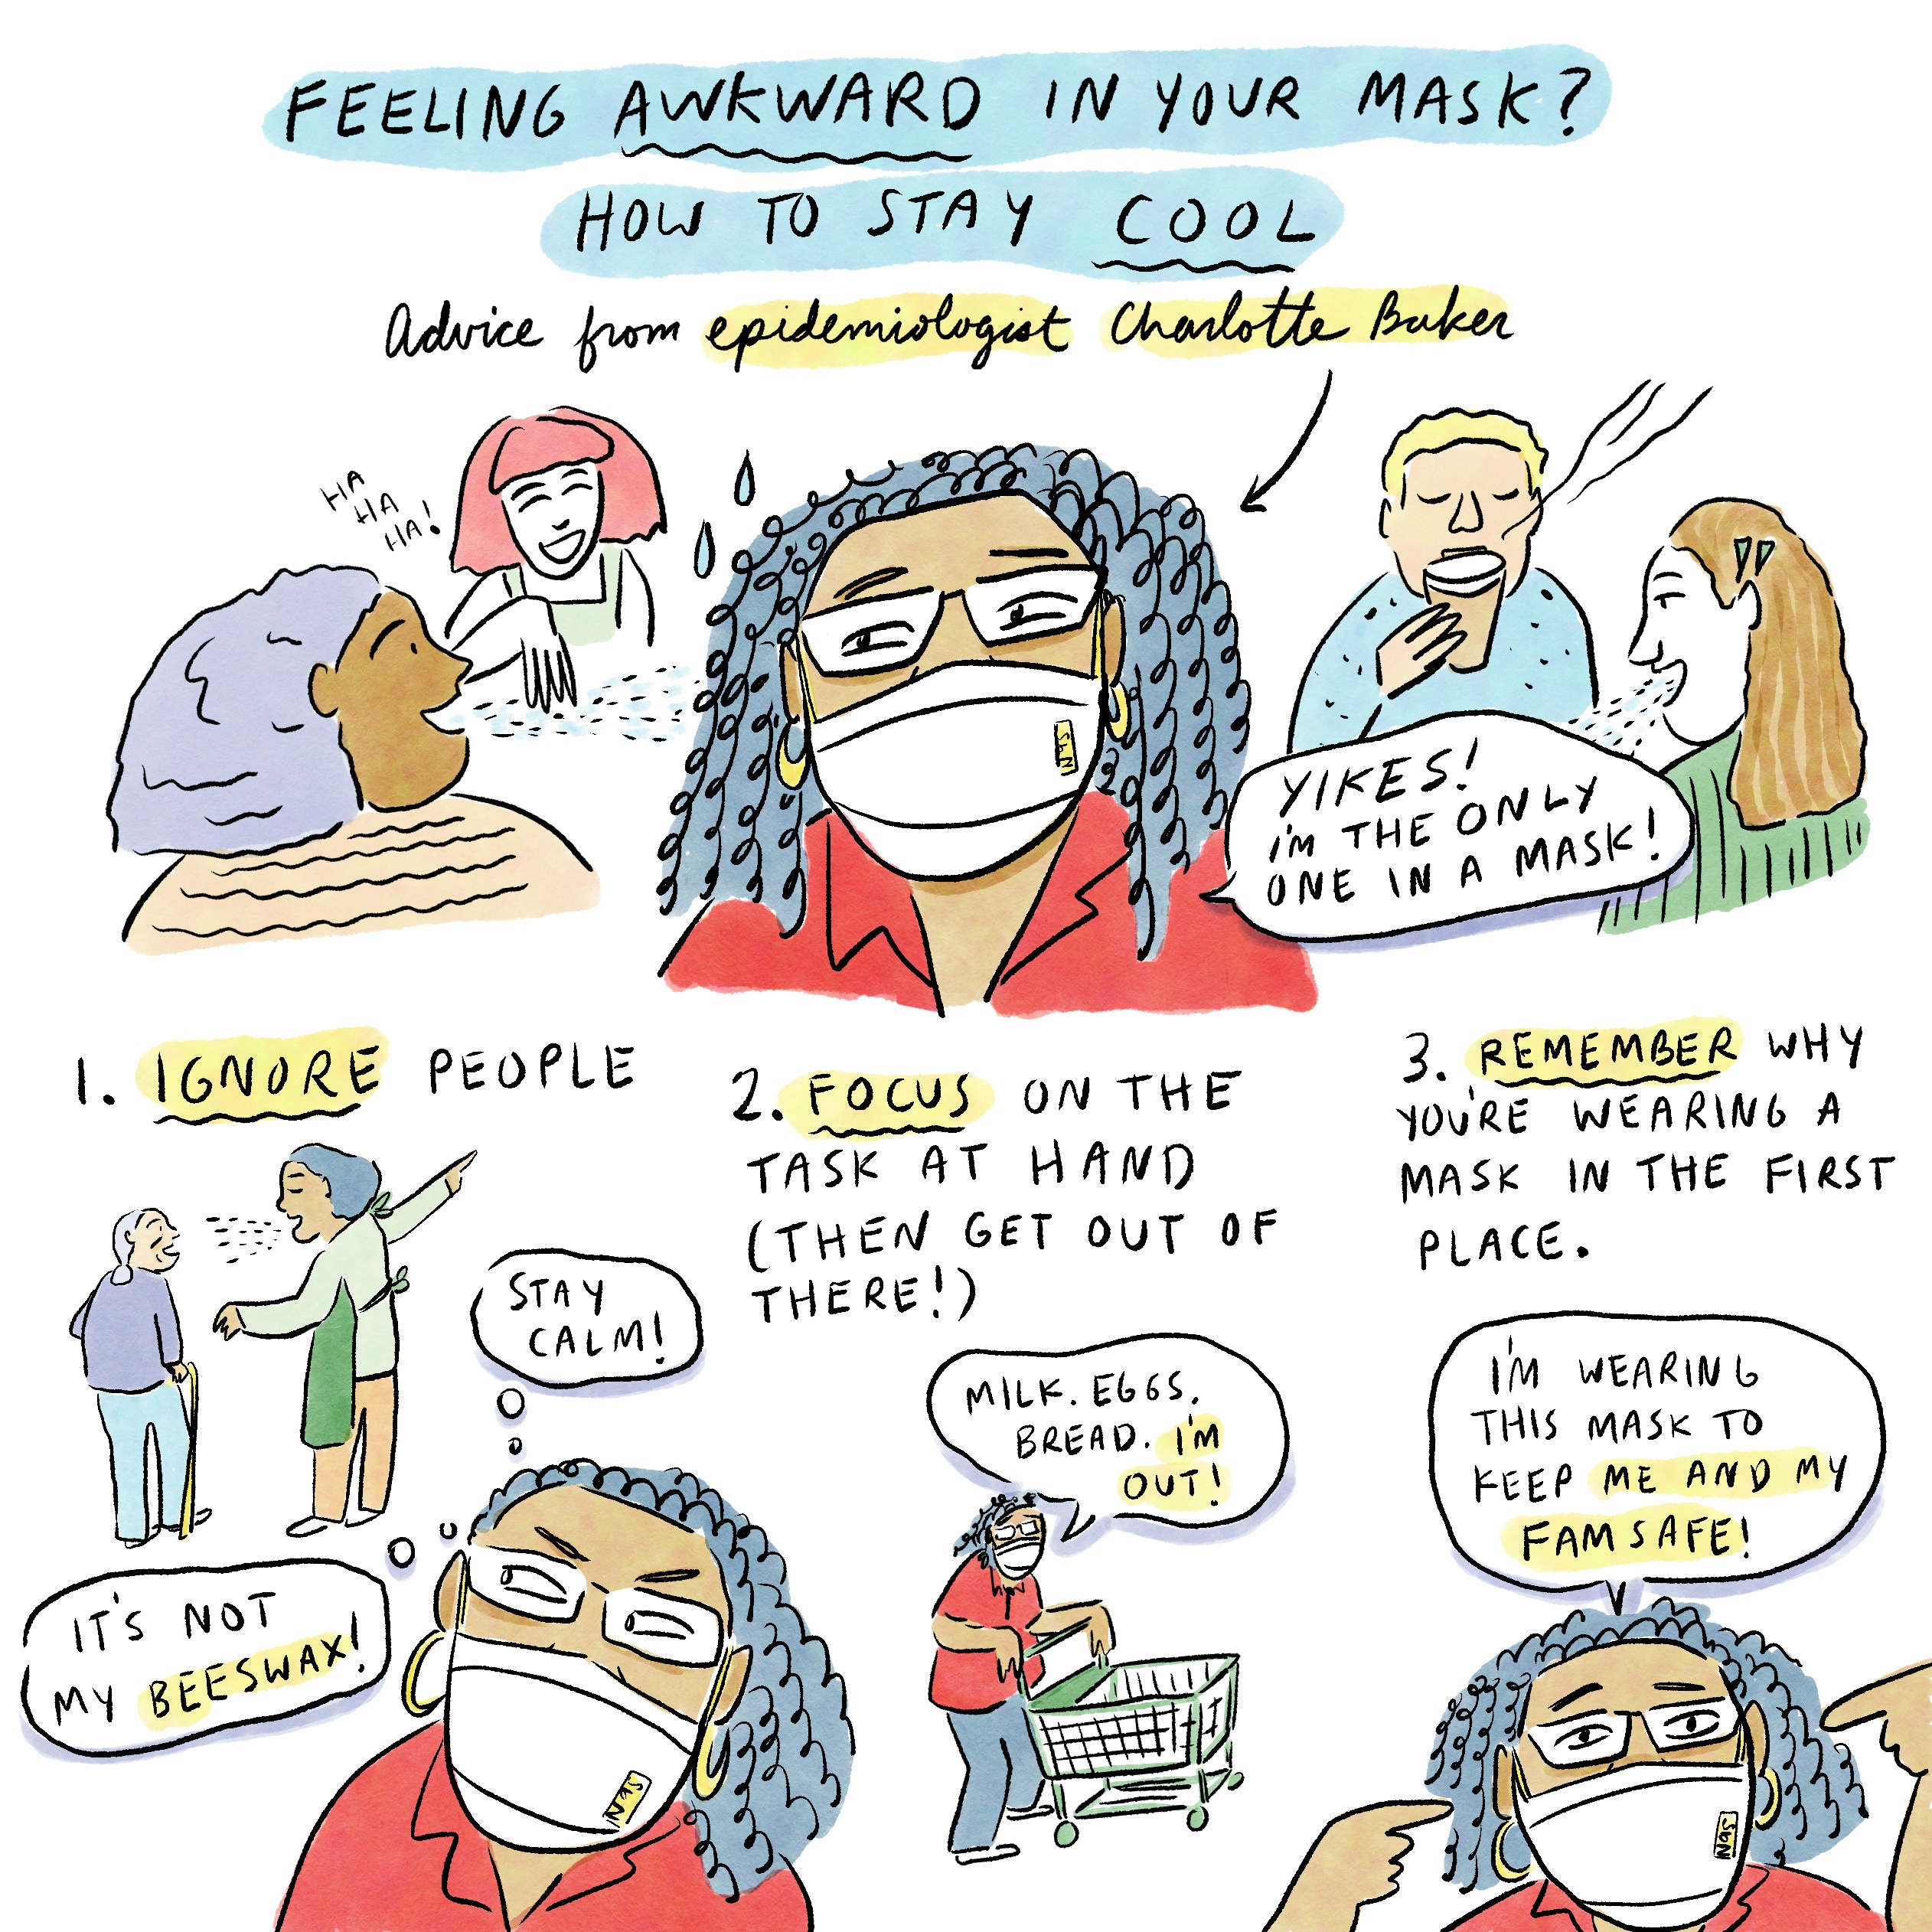 FEELING AWKWARD IN YOUR MASK?
HOW TO STAY COOL
Advice from epidemiologist Charlotte Baker
HA
HA
HA!
YIKES!
I'M THE ONLY
ONE IN A MASK!
1. IGNORE PEOPLE
STAY
CALM!
IT'S NOT
MY BEESWAX!
2. FOCUS ON THE
TASK AT HAND
(THEN GET OUT OF
THERE!)
MILK. EGGS.
BREAD. I'M
OUT!
3. REMEMBER WHY
YOU'RE WEARING A
MASK IN THE FIRST
PLACE.
I'M WEARING
THIS MASK TO
KEEP ME AND MY
FAM SAFE!